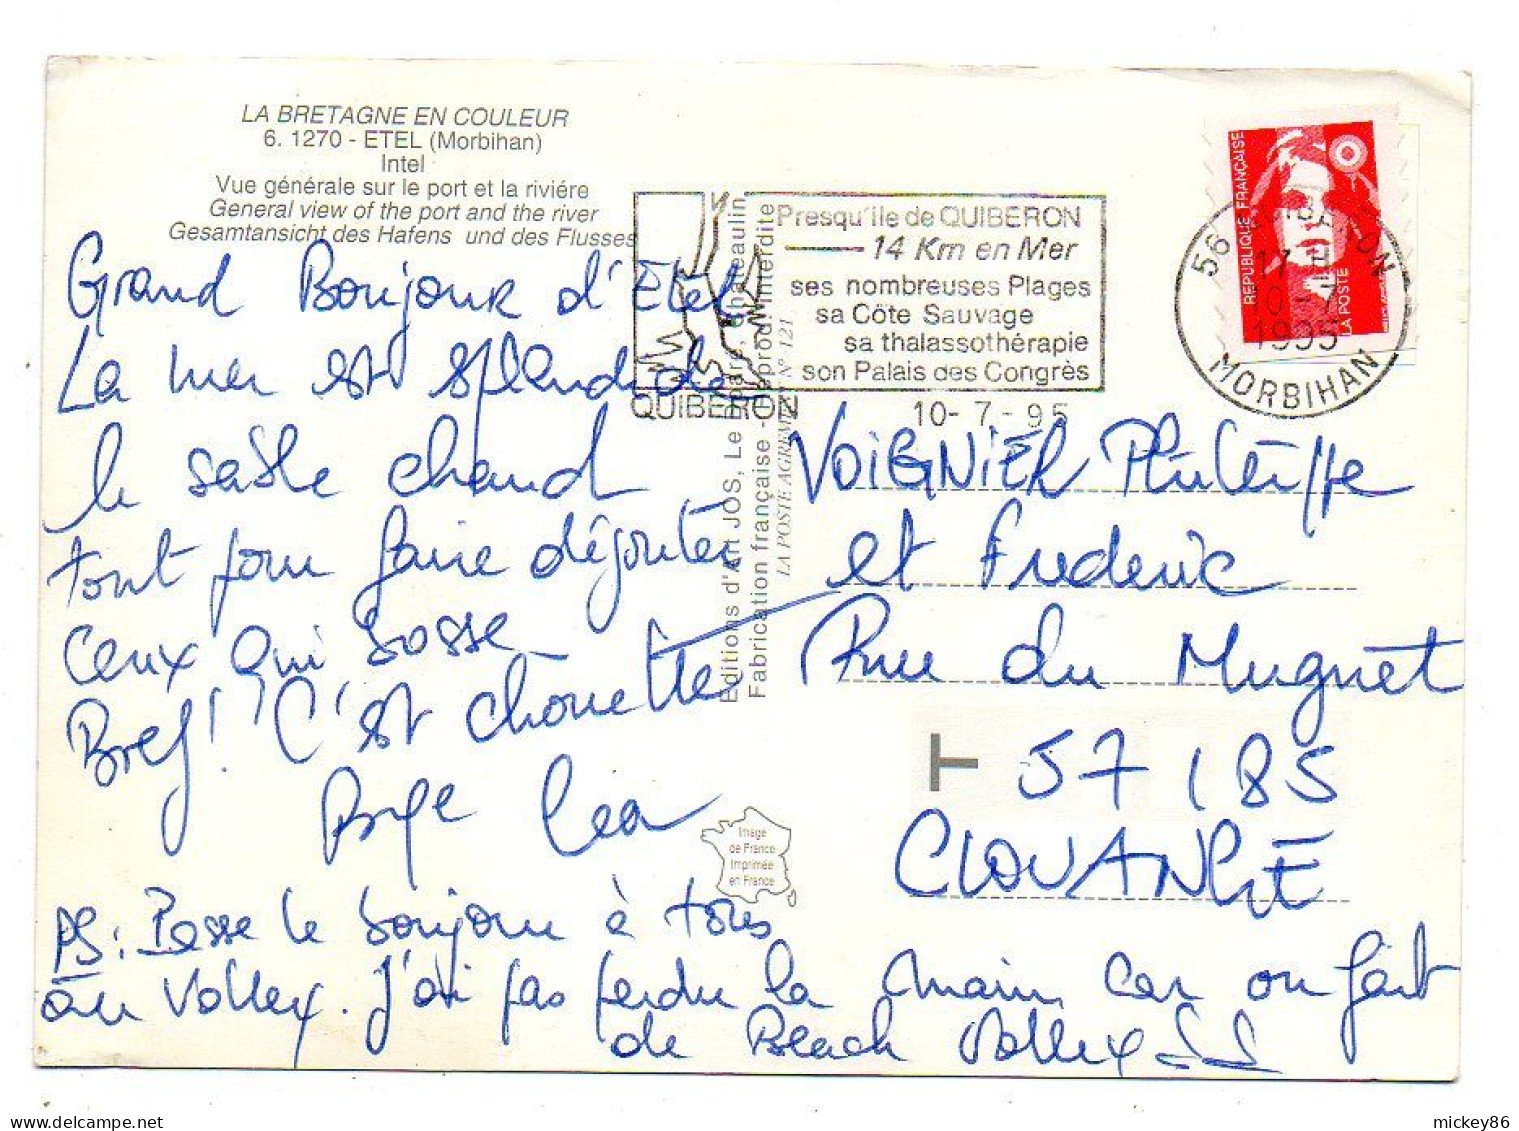 LA BRETAGNE EN COULEUR
6. 1270 - ETEL (Morbihan)
Intel
Vue générale sur le port et la riviére
General view of the port and the river
Gesamtansicht des Hafens und des Flusses
Grand Bonjour d'Etel
La mer est splendide
le sable chaud
tout pour faire dégouter
ceux qui bosse
Bref! C'est chouette
Léa
PS: Passe le bonjour à tous
au Volley. J'ai pas perdu la main, car on fait
de Beach Volley
Editions d'Art JOS, Le Châteaulin
Fabrication française - Reprod. interdite
LA POSTE AGREMENT N° 121
QUIBERON
Presqu'ile de QUIBERON
14 Km en Mer
ses nombreuses Plages
sa Côte Sauvage
sa thalassothérapie
son Palais des Congrès
10-7-95
REPUBLIQUE FRANÇAISE
LA POSTE
56 QUIBERON
17 H
10-7
1995
MORBIHAN
VOIGNIER Philippe
et Frederic
Rue du Muguet
T
57 185
CLOUANGE
Image
de France
Imprimée
en France
mickey86